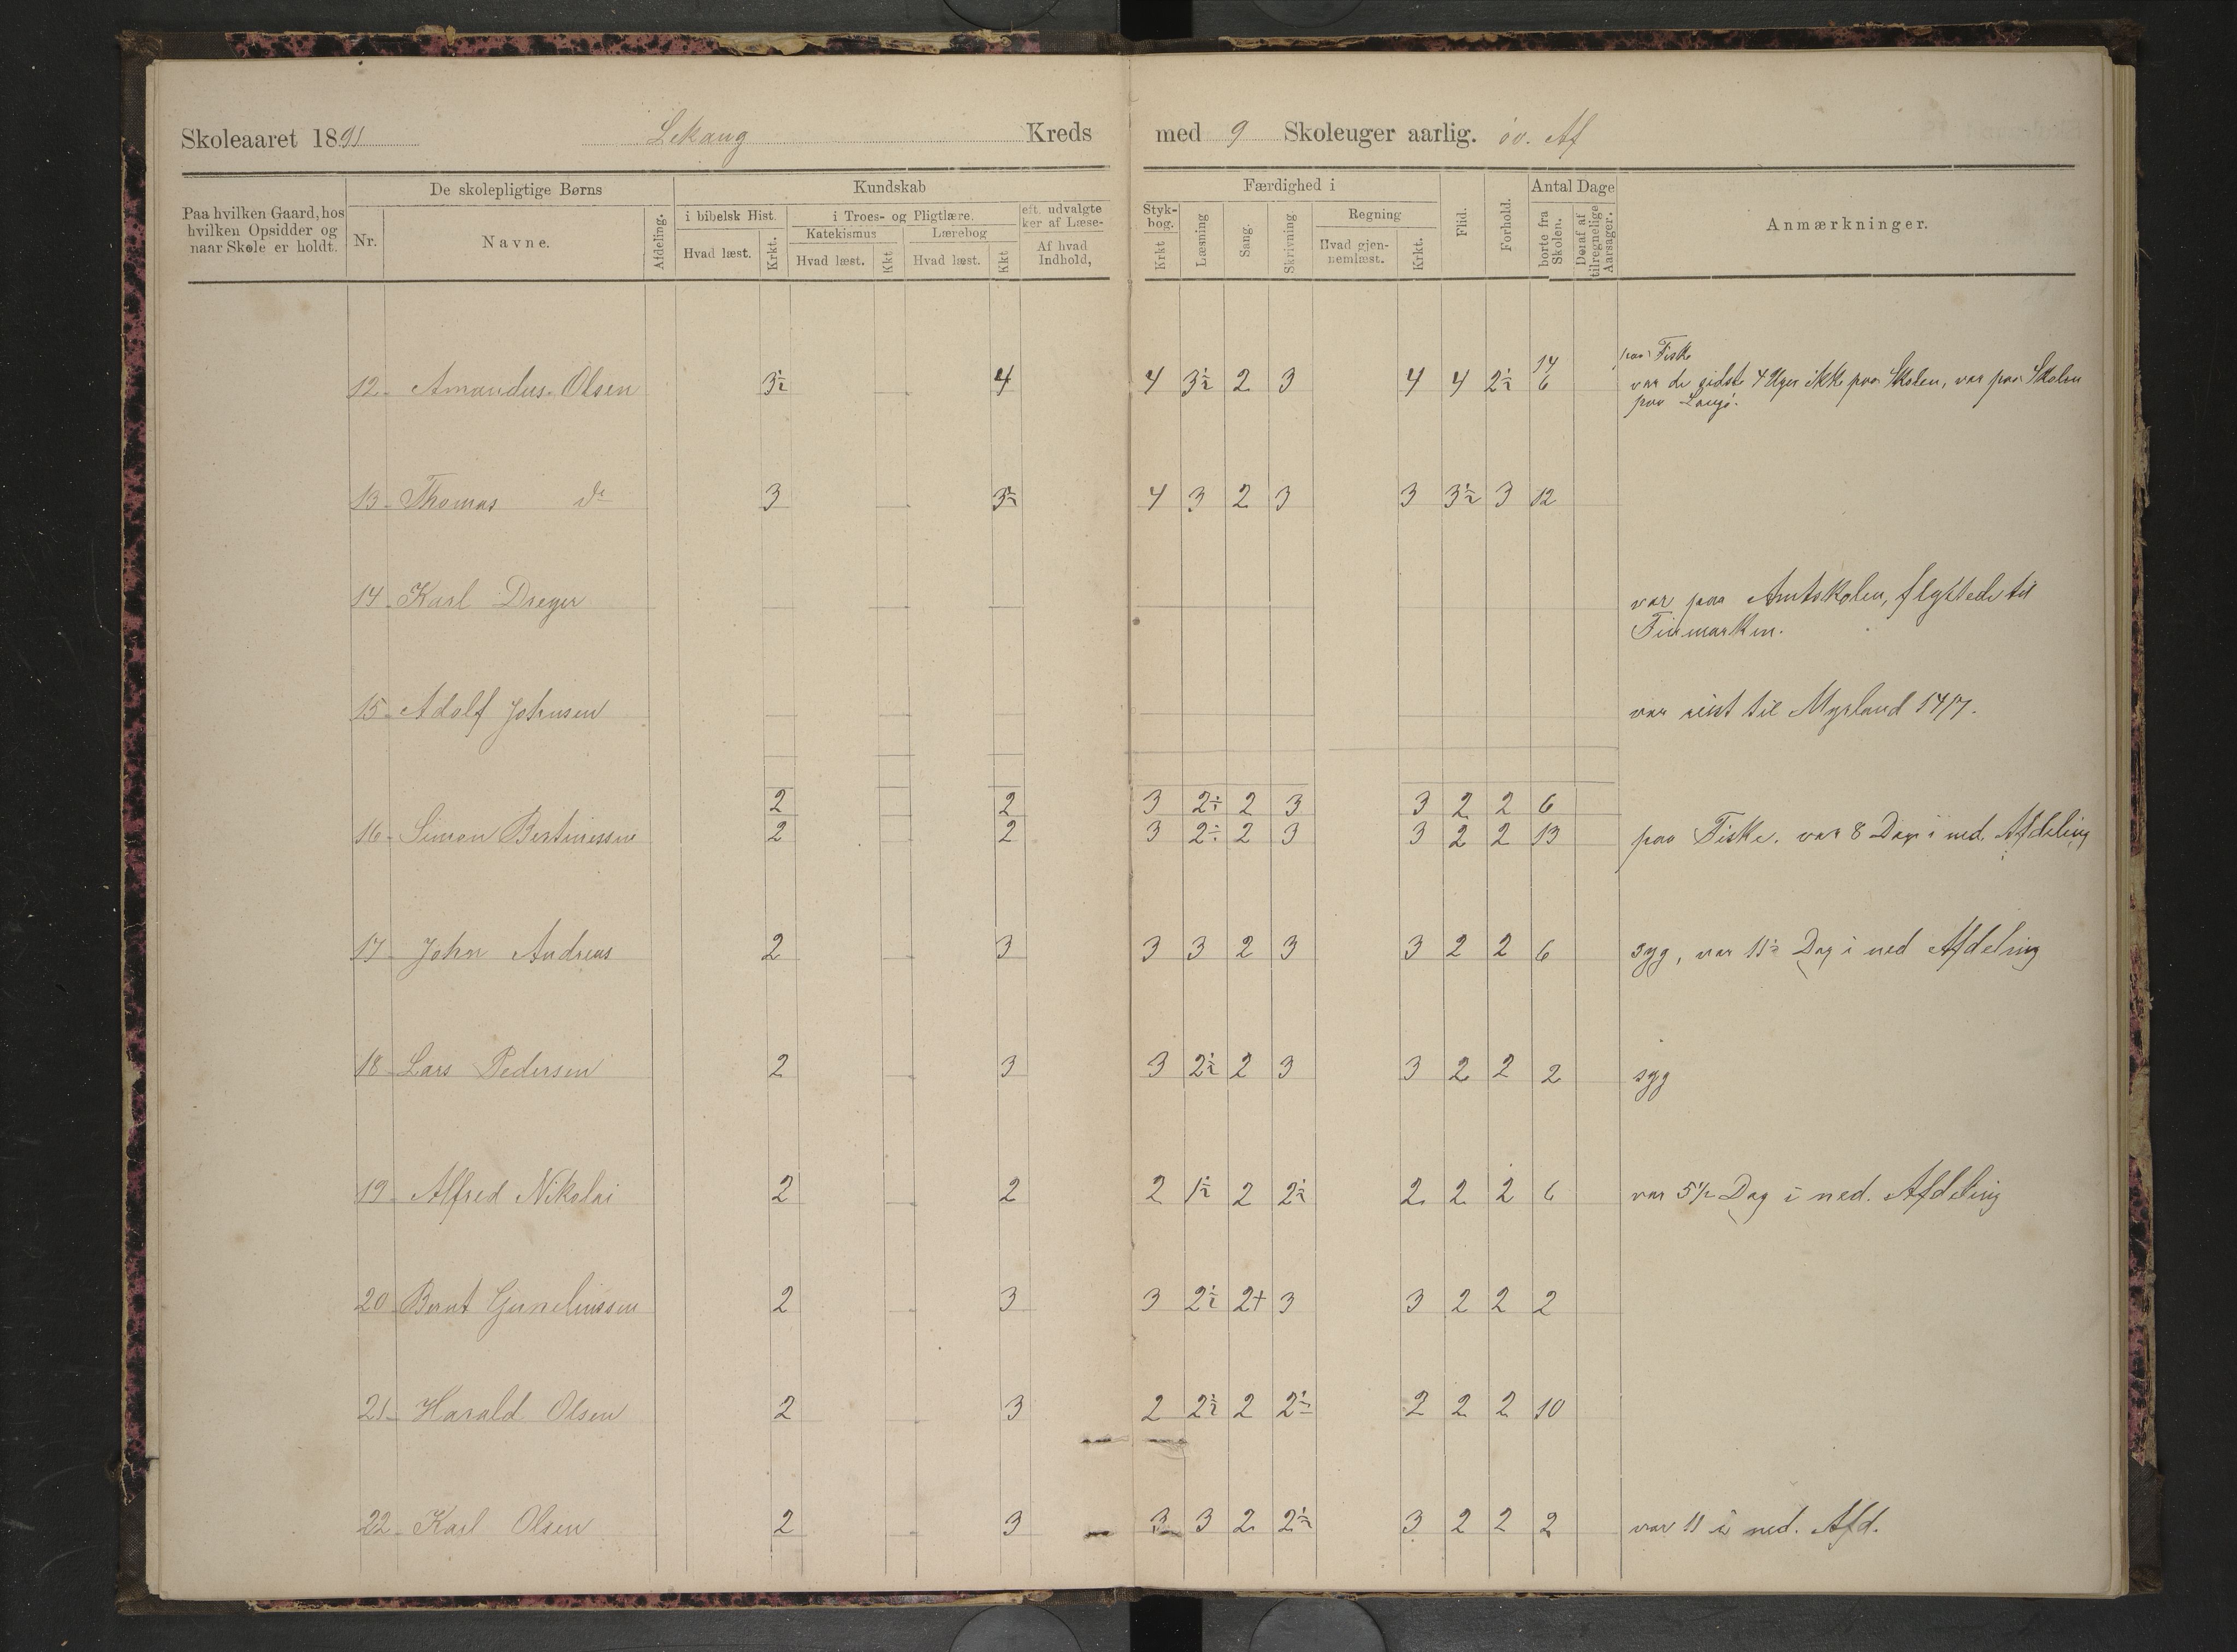 Skoleaaret 1891 Lekang Kreds med 9 Skoleuger aarlig. öv. Af
De skolepligtige Børns Kundskab Færdighed i Antal Dage
Paa hvilken Gaard, hos hvilken Opsidder og naar Skole er holdt. Nr. Navne. Afdeling. i bibelsk Hist. i Troes- og Pligtlære. eft. udvalgte ker af Læse- Styk- bog. Læsning Sang. Skrivning Regning Flid. Forhold. borte fra Skolen. Deraf af tilregnelige Aarsager. Anmærkninger.
Katekismus Lærebog
Hvad læst. Krkt. Hvad læst. Kkt Hvad læst. Kkt Af hvad Indhold, Krkt Hvad gjennemlæst. Krkt.
paa Fiske
14
12 Amandus Olsen 3½ 4 4 3½ 2 3 4 4 2½ 6 var de sidste 4 Uger ikke paa Skolen, var paa Skolen
paa Langö.
13 Thomas do 3 3½ 4 3 2 3 3 3½ 3 12
14 Karl Dreyer var paa Amtskolen, flyttede til
Finmarken.
15 Adolf Johnsen var reist til Myrland 14/7.
2 2 3 2÷ 2 3 3 2 2 6
16 Simon Bertinussen 2 2 3 2÷ 2 3 3 2 2 13 paa Fiske. var 8 Dage i ned. Afdeling
17 John Andreas 2 3 3 3 2 3 3 2 2 6 syg, var 11½ Dag i ned Afdeling
18 Lars Pedersen 2 3 3 2½ 2 3 3 2 2 2 syg
19 Alfred Nikolai 2 2 2 1½ 2 2½ 2 2 2 6 var 5½ Dag i ned. Afdeling
20 Bernt 2 3 3 2½ 2+ 3 3 2 2 2
21 Harald Olsen 2 3 2 2½ 2 2½ 2 2 2 10
22 Karl Olsen 2 3 3 3 2 2½ 3 2 2 2 var 11 i ned. Afd.